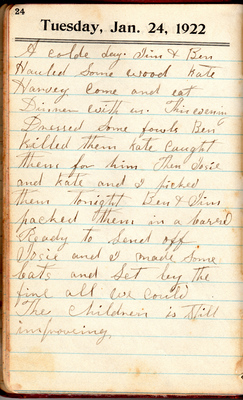 24
Tuesday, Jan. 24, 1922
A colde day. Tim & Ben
Hauled Some wood Kate
Harvey come and eat
Dinner with us. This evening
Dressed some fowls Ben
killed them Kate caught
them for him. Then Josie
and Kate and I picked
them tonight Ben & Tim
packed them in a barrel
Ready to Send off
Josie and I made some
and Set by the
fire all we could.
The Childrens is Still
improveing